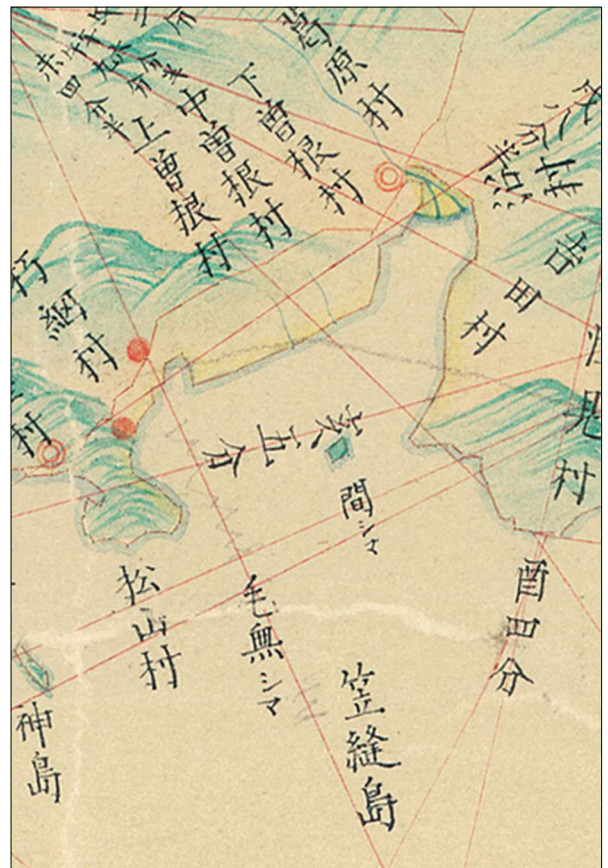 葛原村
下曽根村
中曽根村
上曽根村
朽網村
村
吉田村
恒見村
亥五分
間シマ
松山村
毛無シマ
笠縫島
神島